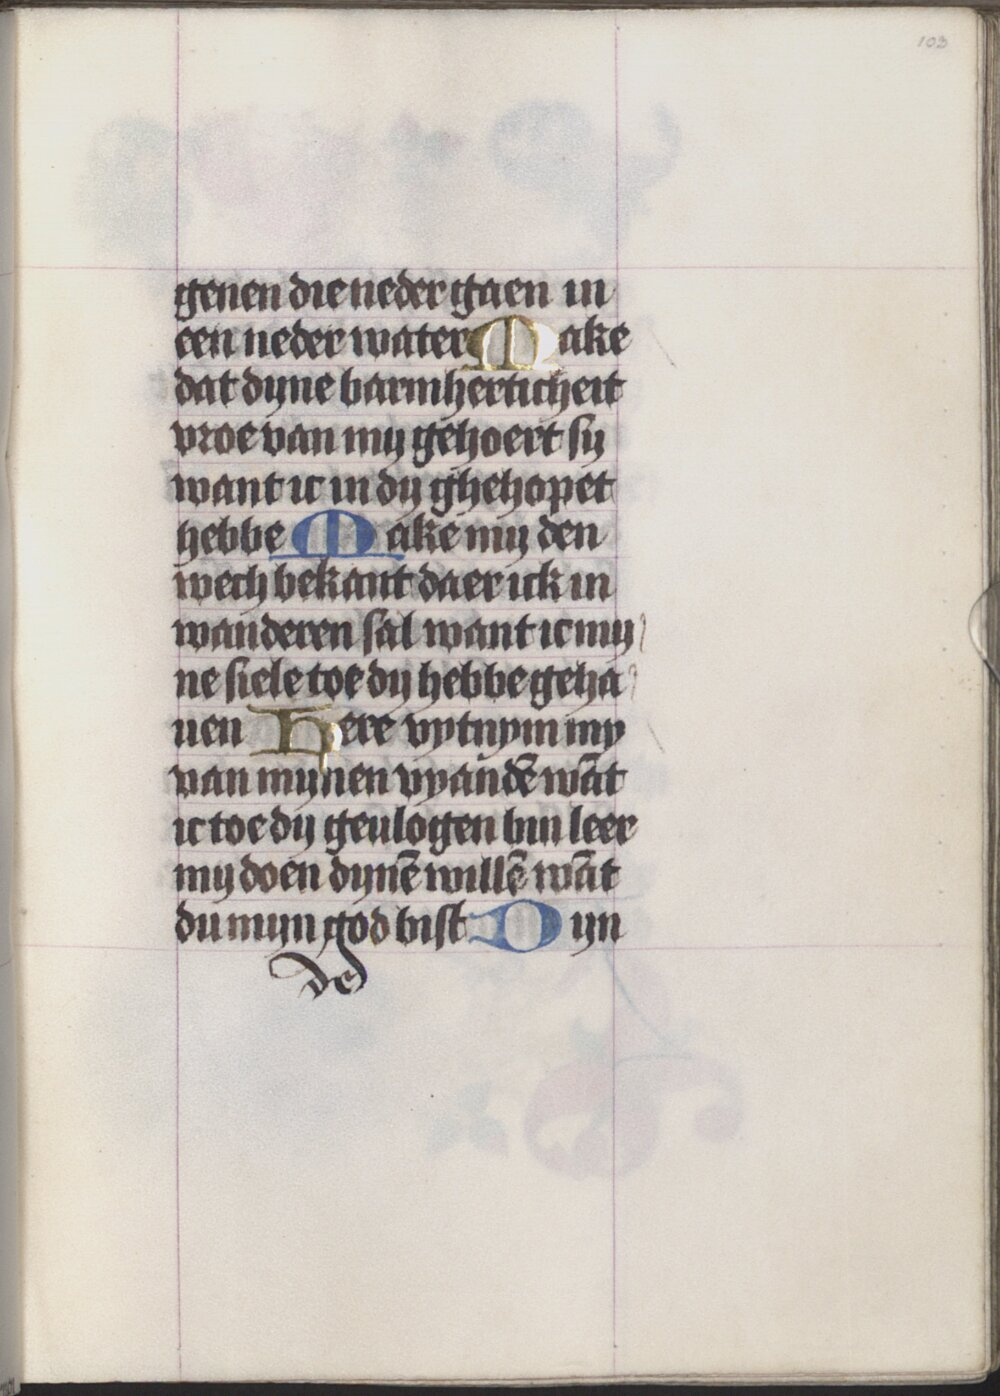 103
genen die neder gaen in
een neder water Make
dat dyne barmherticheit
vroe van my gehoert sy
want ic in dy ghehopet
hebbe Make my den
wech bekant daer ick in
wanderen sal want ic my
ne siele toe dy hebbe geha
uen Here vytnym my
van mynen vyandē wāt
ic toe dy geulogen bin leer
my doen dynē willē wāt
du myn god bist Dyn